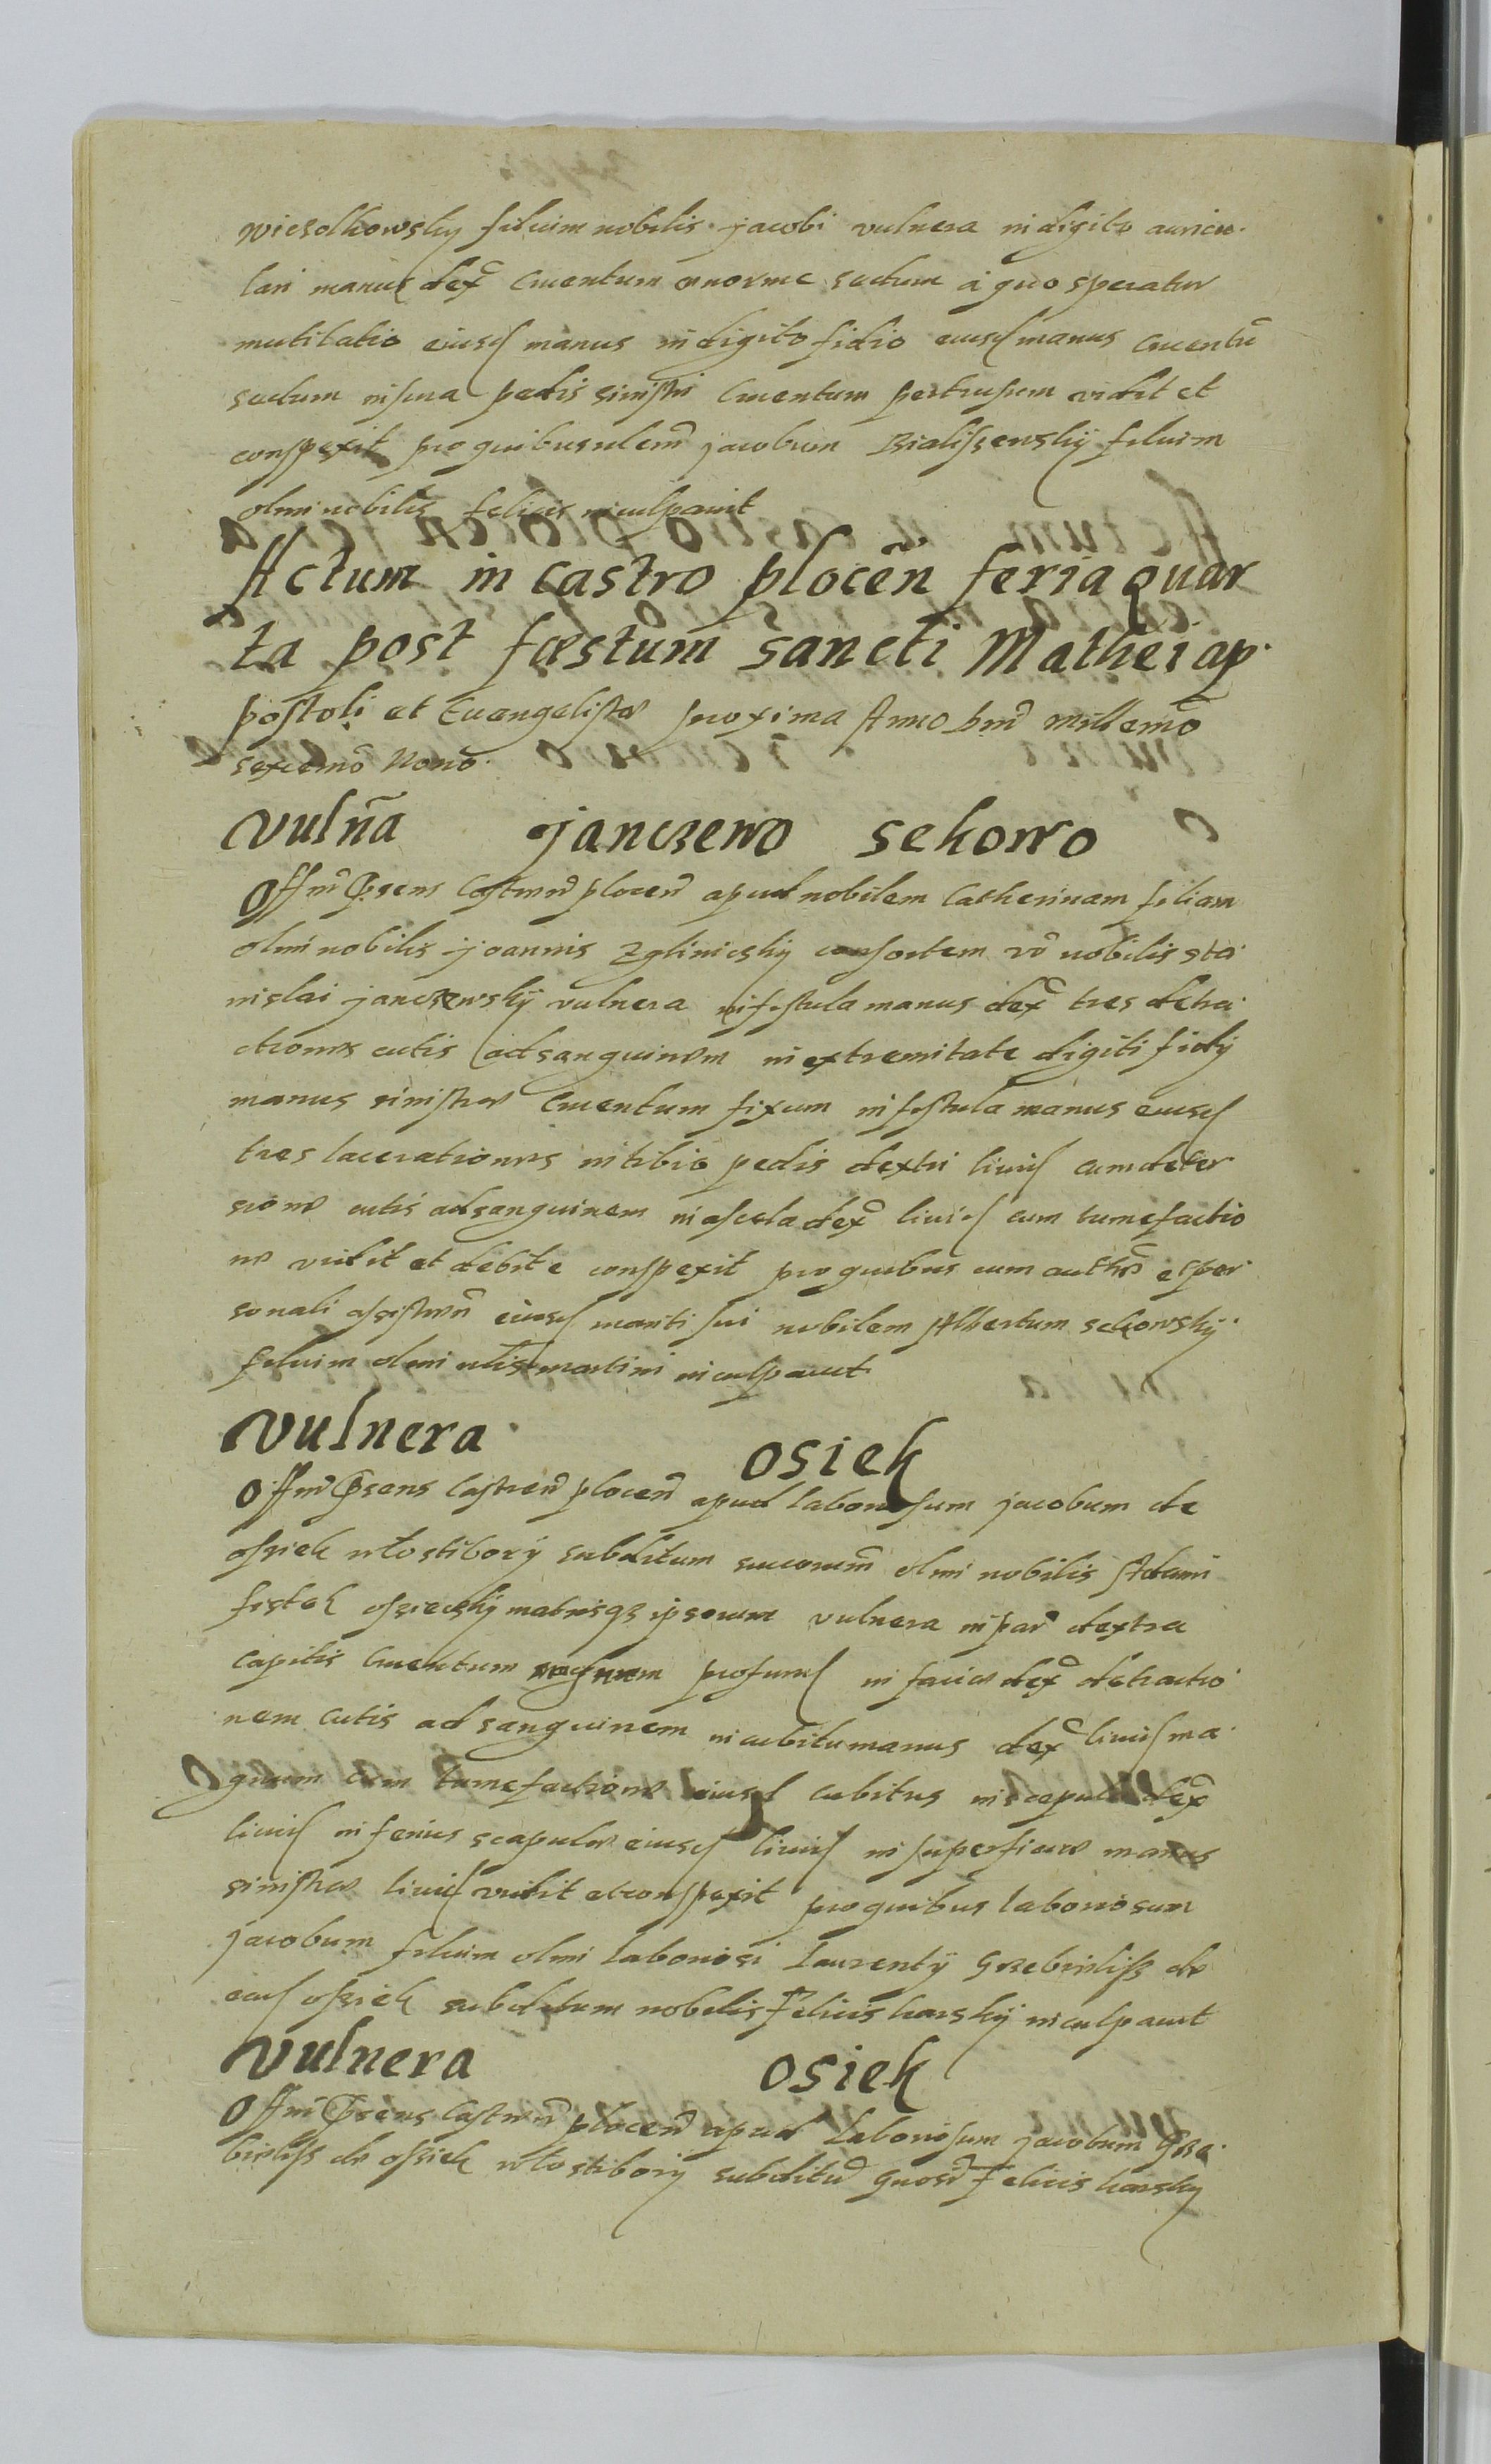 wiesolkowsky filium nobilis jacobi vulnera in digito auricu
lari manus dex̃ cruentum enorme sectum a quo speratur
mutilatio eiusd manus in digito fidio eiusd manus cruentũ
sectum in sura pedis sinistri cruentum pertusum vidit et
conspexit pro quibus jacobum Bialiszewskÿ filium
olim nobilis felicis inculpavit
Actum in castro plocen̄ feria quar
ta post fæstum sancti Mathei ap
postoli et Euangelistæ proxima Anno dnĩ millemõ
sexcemõ Nono
vulña janczewo sekowo
Offm̃ pñsens castren̄ plocen̄ apud nobilem Catherinam filiam
olim nobilis joannis Zglinicskÿ consortem võ nobilis sta
nislai janczewskÿ vulnera in fistula manus dex̃ tres detra
ctiones cutis ad sanguinem in extremitate digiti fidÿ
manus sinistræ cruentum fixum in fistula manus eiusd
tres lacerationes in tibia pedis dextri liuid cum deter
sione cutis ad sanguinem in ascela dex̃ liuid cum tumefactio
ne vidit et debite conspexit pro quibus cum et per
sonali assisten̄ eiusd mariti sui nobilem Albertum sekowskÿ
filium olim nlis martini inculpauit
vulnera osiek
Offm̃ pñsens castren̄ plocen̄ apud laboriosum jacobum de
osziek wlostiborÿ subditum succorum̃ olim nobilis Adami
fistek osziecskÿ matrisqz ipsorum vulnera in par̃ dextra
capitis cruentum profund in facie dex̃ detractio
nem cutis ad sanguinem in cubitu manus dex̃ liuid ma
gnum cum tumefactione eiusd cubitus in scapula dex̃
liuid inferius scapulæ eiusd liuid in superficie manus
sinistræ liuid vidit et conspexit pro quibus laboriosum
jacobum filium olim laboriosi laurentÿ Grzebieliss de
ead osziek subditum nobilis felicis karskÿ inculpauit
vulnera osiek
Offm̃ pñsens castren̄ plocen̄ apud laboriosum jacobum Grze
bieliss de osziek wlostiborÿ subditũ felicis karsky